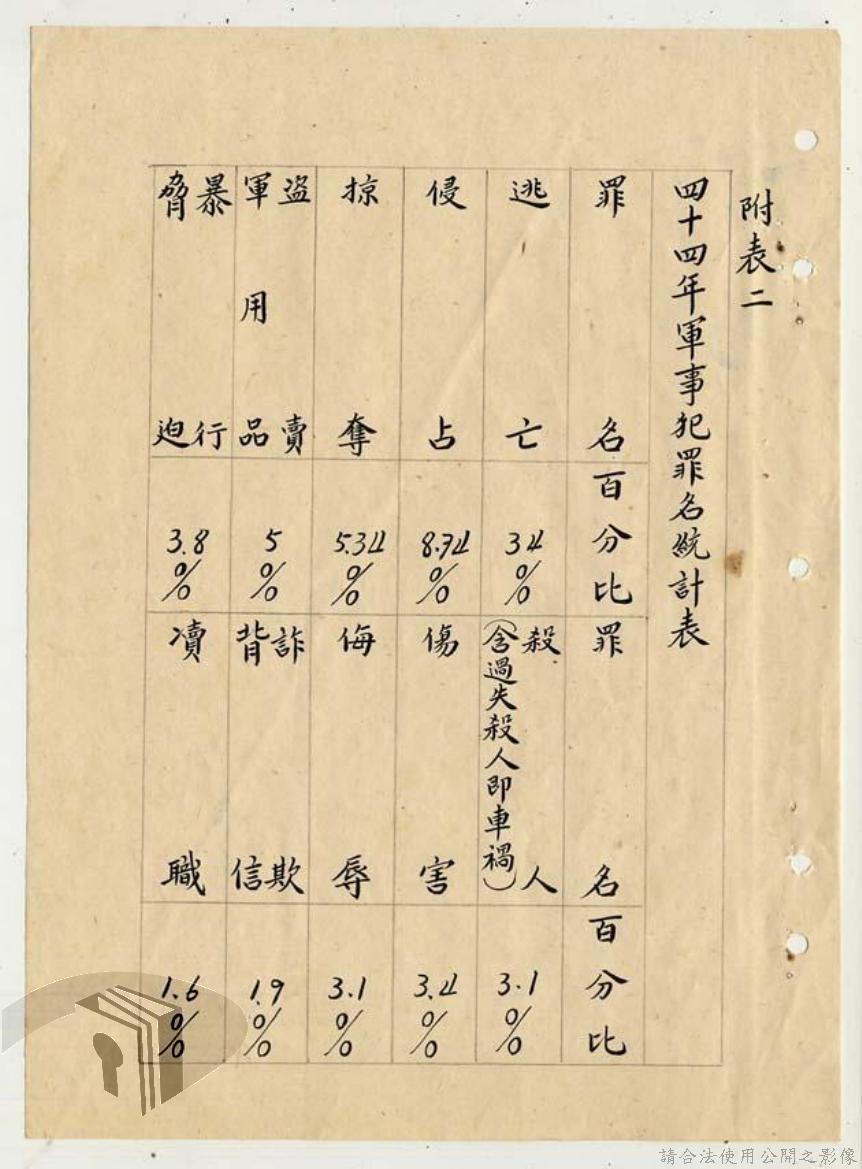 附表二
四十四年軍事犯罪名統計表
罪名 百分比 罪名 百分比
逃亡 34% 殺人(含過失殺人即車禍) 3.1%
侵占 8.74% 傷害 3.4%
掠奪 5.34% 侮辱 3.1%
盜賣軍用品 5% 詐欺背信 1.9%
暴行脅迫 3.8% 瀆職 1.6%
請合法使用公開之影像